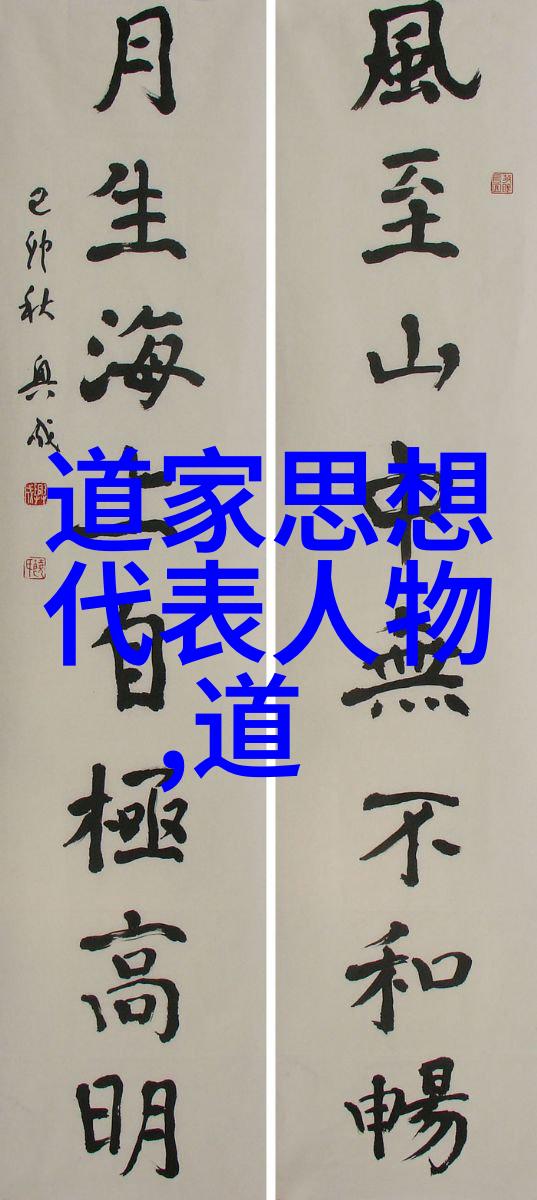 風至山中無不和暢
月生海上自極高明
己卯秋 興成
道家思想
代表人物
,道